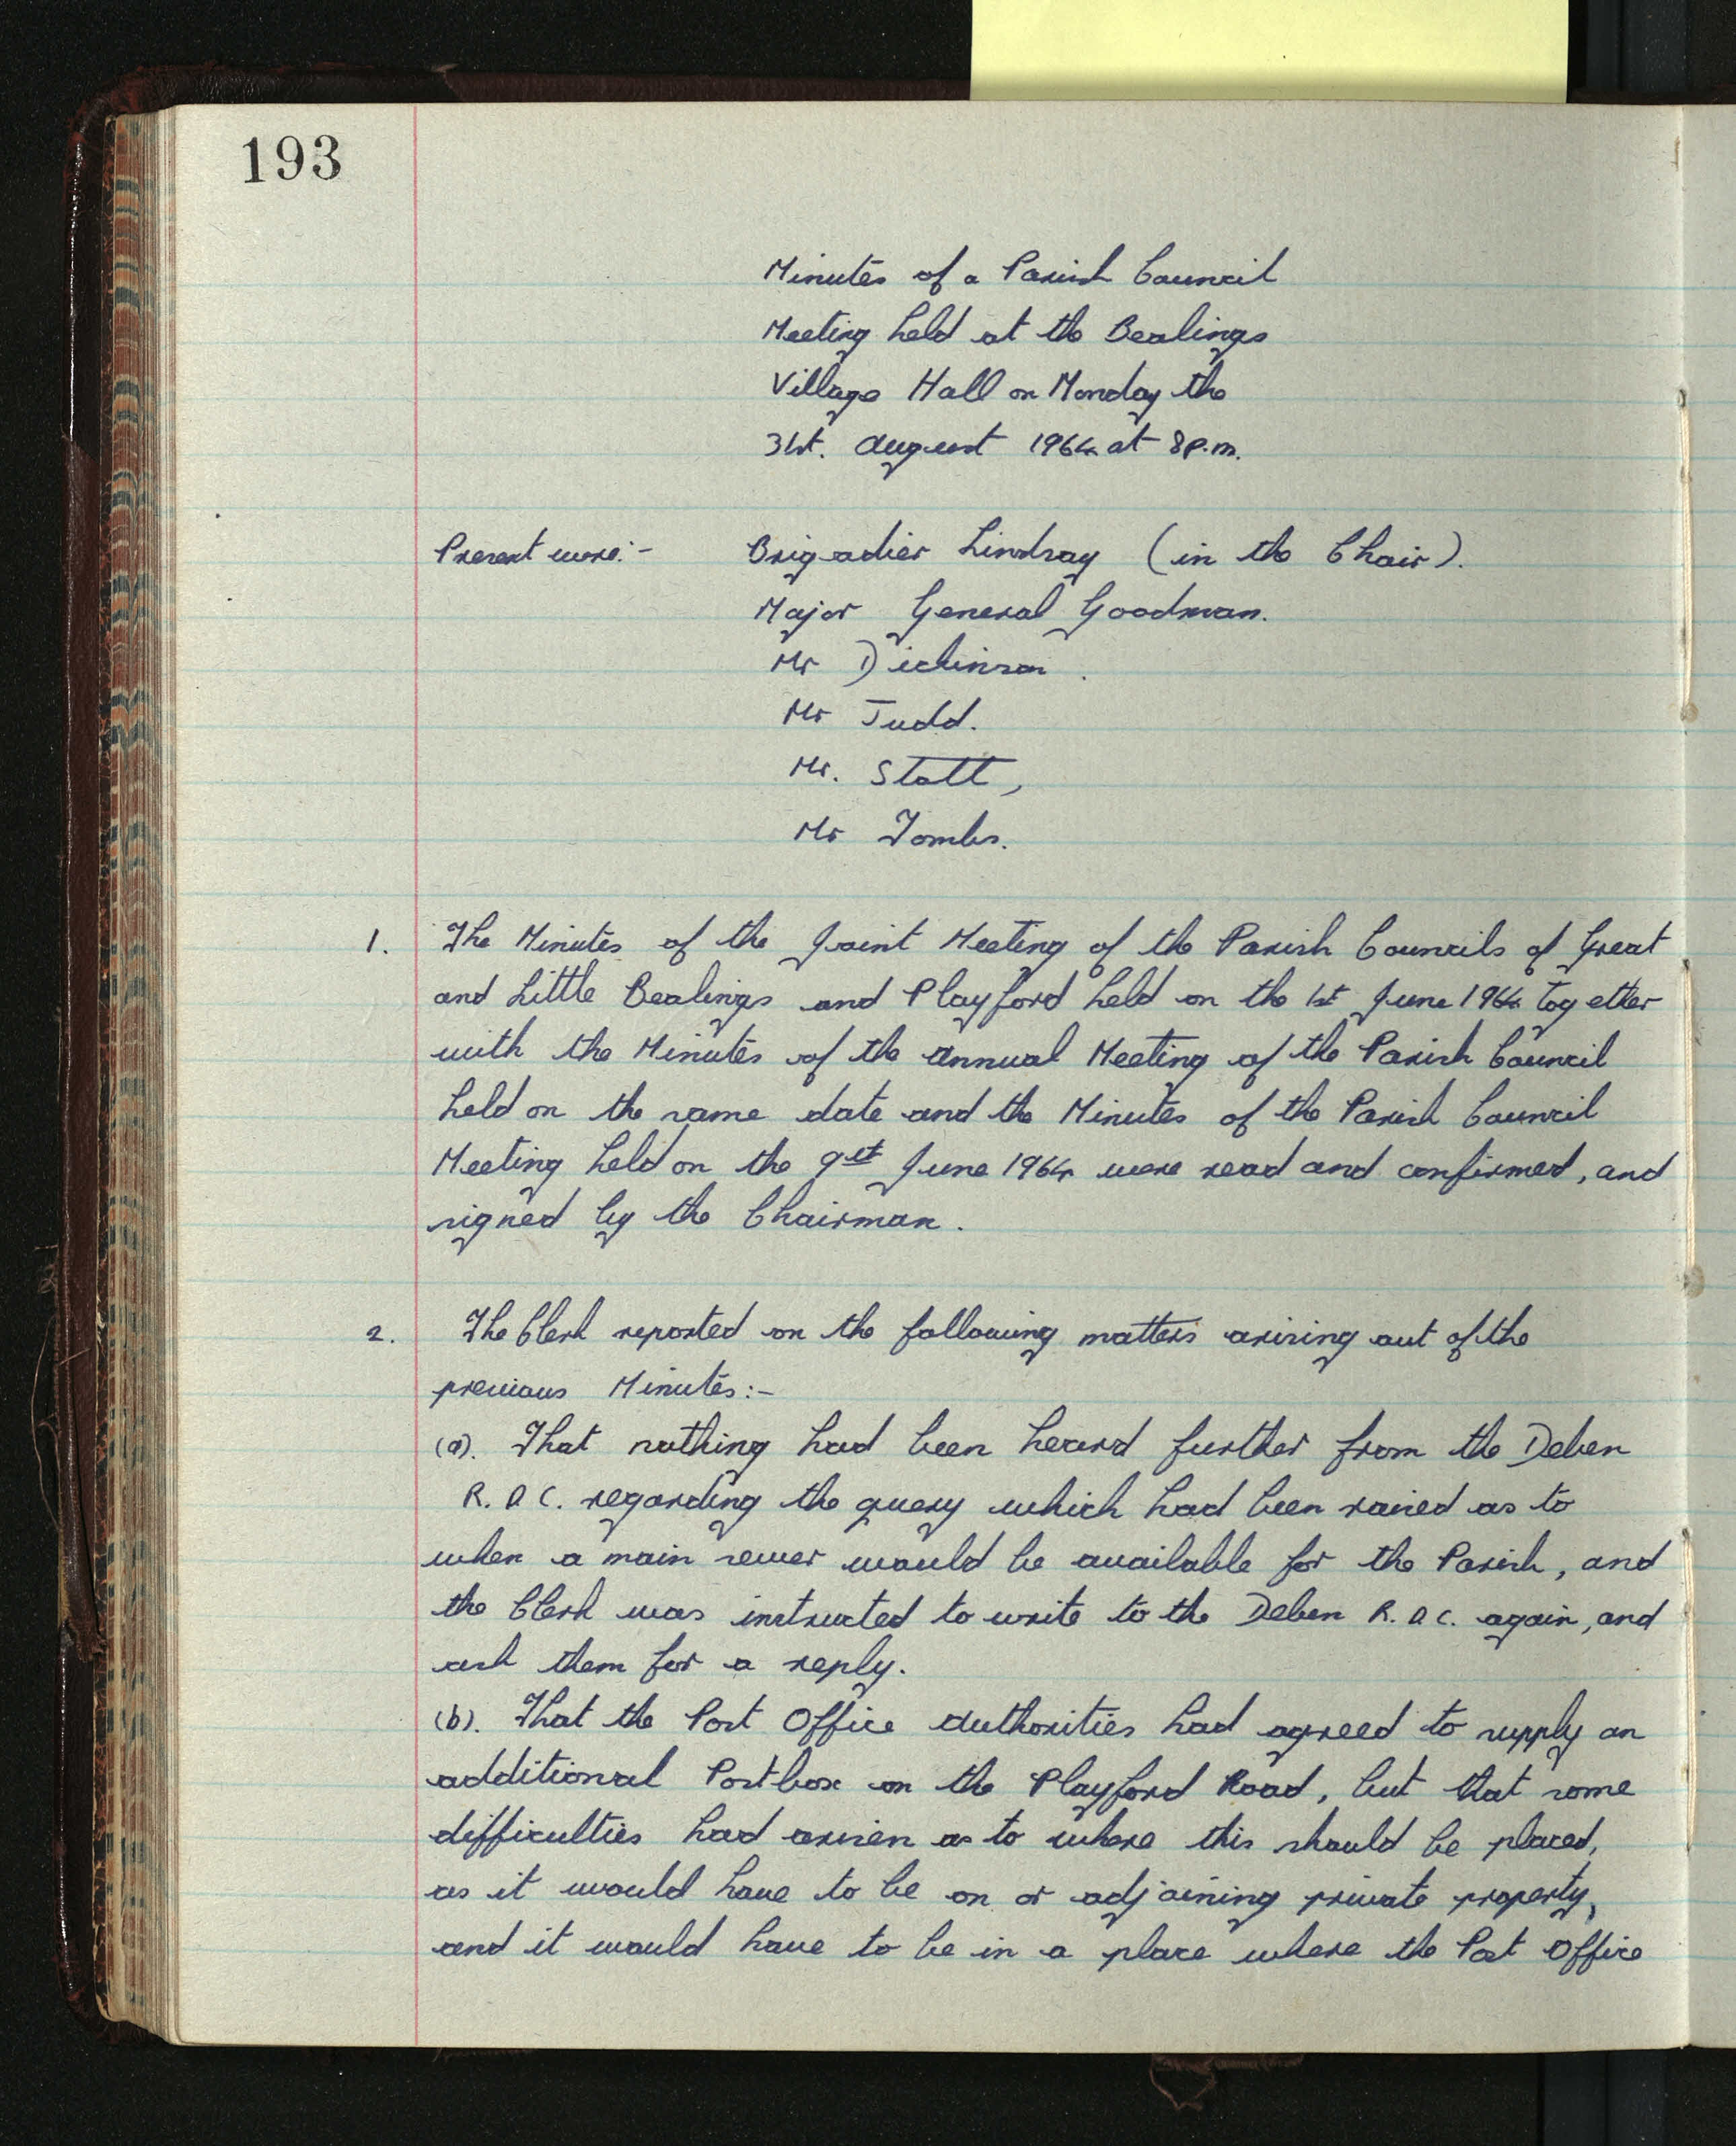 193
Minutes of a Parish Council
Meeting held at the Bealings
Village Hall on Monday the
31st. August 1964 at 8p.m.
Present were:- Brigadier Lindsay (in the Chair).
Major General Goodman.
Mr Dickinson.
Mr Judd.
Mr. Stott,
Mr Tombs.
1. The Minutes of the Joint Meeting of the Parish Councils of Great
and Little Bealings and Playford held on the 1st June 1964 together
with the Minutes of the Annual Meeting of the Parish Council
held on the same date and the Minutes of the Parish Council
Meeting held on the June 1964 were read and confirmed, and
signed by the Chairman.
2. The Clerk reported on the following matters arising out of the
previous Minutes:-
(a). That nothing had been heard further from the Deben
R. D C. regarding the query which had been raised as to
when a main sewer would be available for the Parish, and
the Clerk was instructed to write to the Deben R. D C. again, and
ask them for a reply.
(b). That the Post Office Authorities had agreed to supply an
additional Postbox on the Playford Road, but that some
difficulties had arisen as to where this should be placed,
as it would have to be on or adjoining private property,
and it would have to be in a place where the Post Office